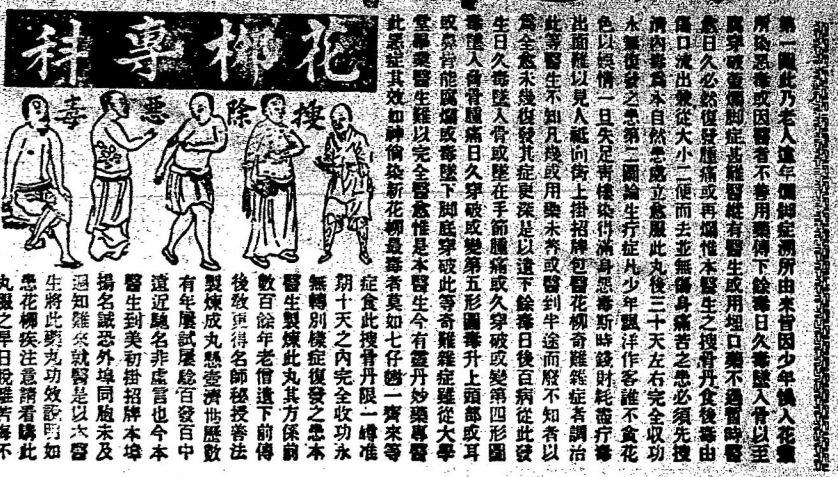 花柳專科
搜除惡毒
第一圖此乃老人遠年爛脚症溯所由來皆因少年悞入花叢
所染惡毒或因醫者不善用藥傳下餘毒日久毒墜入骨以至
穿破壅爛脚症甚難醫縱有醫生或用埋口藥不過暫時醫
愈日久必然復發腫痛或再爛惟本醫生之搜骨丹食後毒由
傷口流出兼從大小二便而去並無傷身痛苦之患必須先搜
清內毒為本自然患處立愈服此丸後三十天左右完全收功
永無復發之患第二圖論生疔症凡少年飄洋作客誰不貪花
色以娛情一旦失足靑樓染得滿身惡毒斯時錢財耗盡疔毒
出面難以見人祗向街上掛招牌包醫花柳奇難雜症者調治
此等醫生不知凡幾或用藥未奔或醫到半途而廢不知者以
為全愈未幾復發其症更深是以遺下餘毒日後百病從此發
生日久毒墜入骨或墜在手節腫痛或久穿破或變第四形圖
毒墜入骨骨腫痛日久穿破或變第五形圖毒升上頭部或耳
或鼻皆能腐爛或毒墜下脚底穿破此等奇難雜症雖從大學
堂畢業醫生難以完全醫愈惟是本醫生今有靈丹妙藥專醫
此惡症其效如神倘染新花柳最毒者莫如七仔癐一齊來等
症食此搜骨丹限一禮准
期十天之內完全收功永
無轉別樣症復發之患本
醫生製煉此丸其方係前
數百餘年老僧遺下前傳
後敎更得名師秘授善法
製煉成丸懸壺濟世歷數
有年屢試屢驗百發百中
遠近馳名非虛言也今本
醫生到美初掛招牌本埠
揚名誠恐外埠同胞未及
週知難來就醫是以本醫
生將此藥丸功效說明如
患花柳疾注意請看購此
丸服之早日脫離苦海不